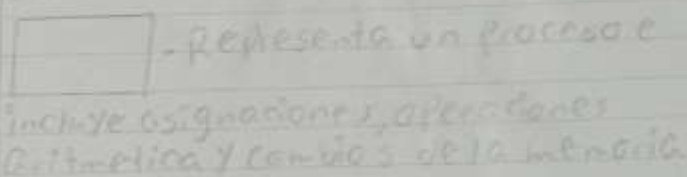 - Representa un proceso e
incluye asignaciones, operaciones
aritmetica y cambios de la memoria